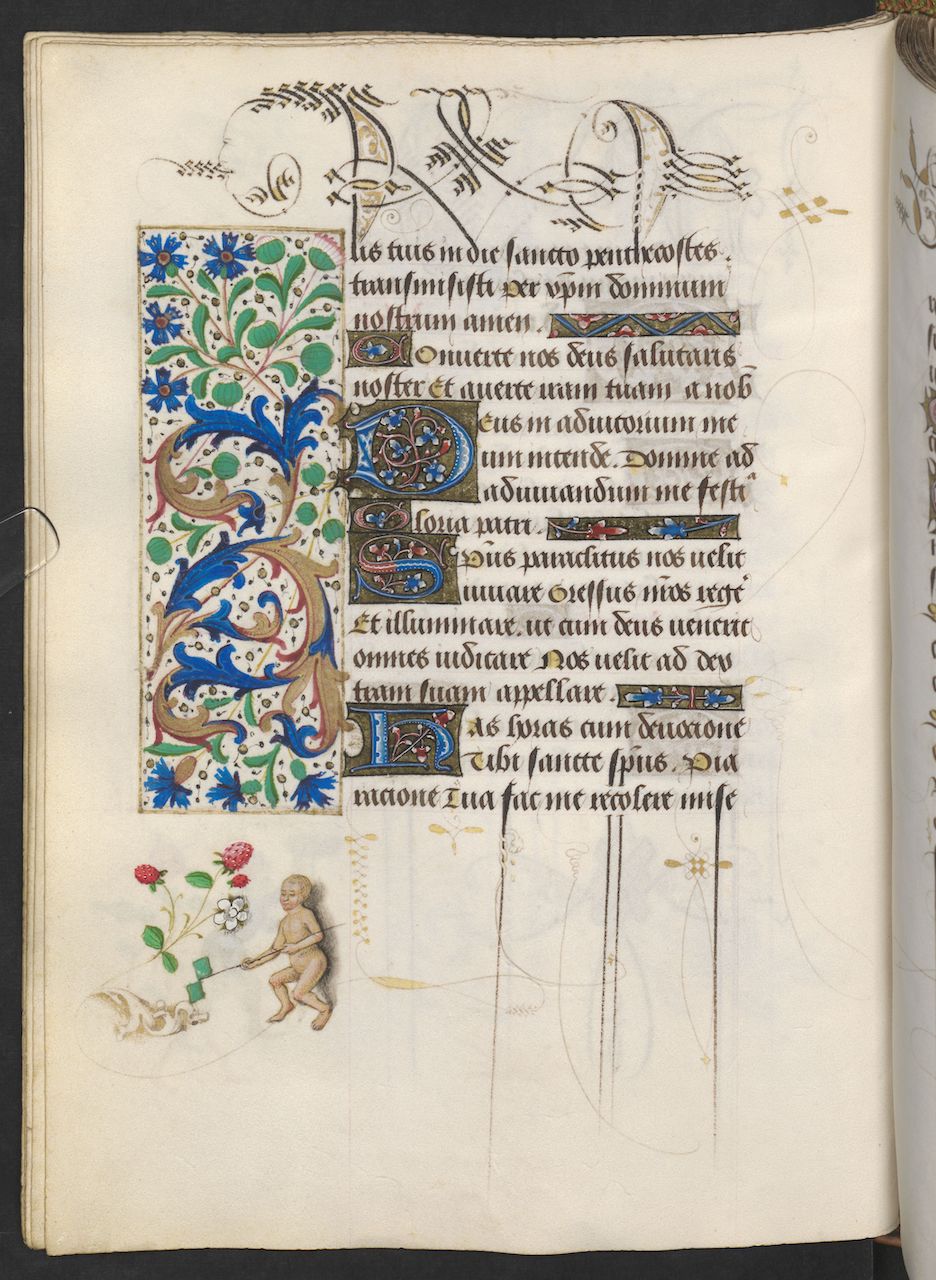 lis tuis in die sancto penthecostes.
transmisisti Per xpm dominum
nostrum amen.
Conuerte nos deus salutaris
noster Et auerte iram tuam a nob
Deus in adiutorium me
um intende. Domine ad
adiuuandum me festi
Gloria patri.
Spus paraclitus nos uelit
iuuare Gressus nros rege
Et illuminare. ut cum deus uenerit
omnes iudicare Nos uelit ad dex
tram suam appellare.
Has horas cum deuocione
Tibi sancte spus. Pia
racione Tua fac me recolere mise